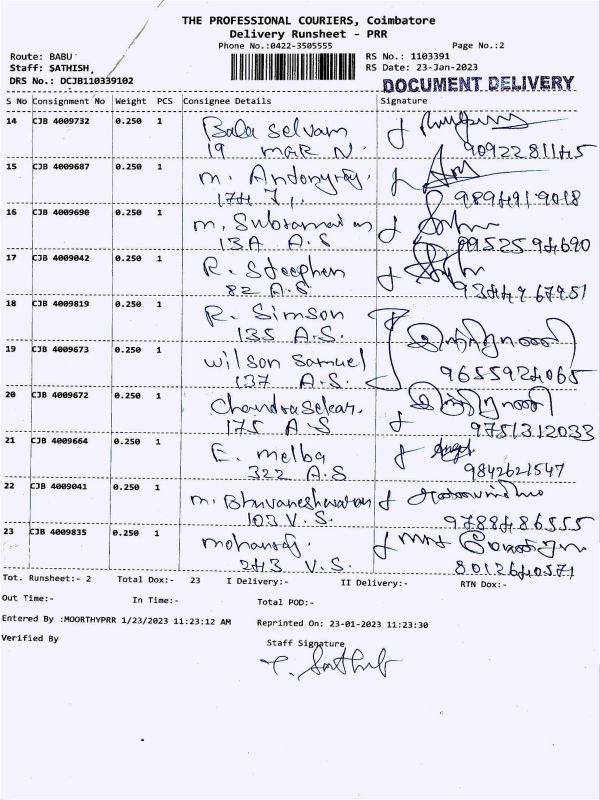 THE PROFESSIONAL COURIERS, Coimbatore
Delivery Runsheet - PRR
Phone No.:0422-3505555 Page No.:2
Route: BABU RS No.: 1103391
Staff: SATHISH, RS Date: 23-Jan-2023
DRS No.: DCJB110339102 DOCUMENT DELIVERY
S No Consignment No Weight PCS Consignee Details Signature
14 CJB 4009732 0.250 1 Bala Selvam
19 MGR N. 9092281145
15 CJB 4009687 0.250 1 M. Antonyraj.
174 9894919018
16 CJB 4009690 0.250 1 M. Subramanian
13A A.S 9952594690
17 CJB 4009042 0.250 1 R. Steephen
82 A.S
18 CJB 4009819 0.250 1 R. Simson
135 A.S.
19 CJB 4009673 0.250 1 Wilson Samuel
137 A.S. 9655924065
20 CJB 4009672 0.250 1 Chandrasekar.
175 A.S 9751312033
21 CJB 4009664 0.250 1 E. Melba
322 A.S 9842621547
22 CJB 4009041 0.250 1 M. Bhuvaneshwaran
103 V.S. 9788486555
23 CJB 4009835 0.250 1 Mohanraj.
243 V.S. 8012640571
Tot. Runsheet:- 2 Total Dox:- 23 I Delivery:- II Delivery:- RTN Dox:-
Out Time:- In Time:- Total POD:-
Entered By :MOORTHYPRR 1/23/2023 11:23:12 AM Reprinted On: 23-01-2023 11:23:30
Verified By Staff Signature